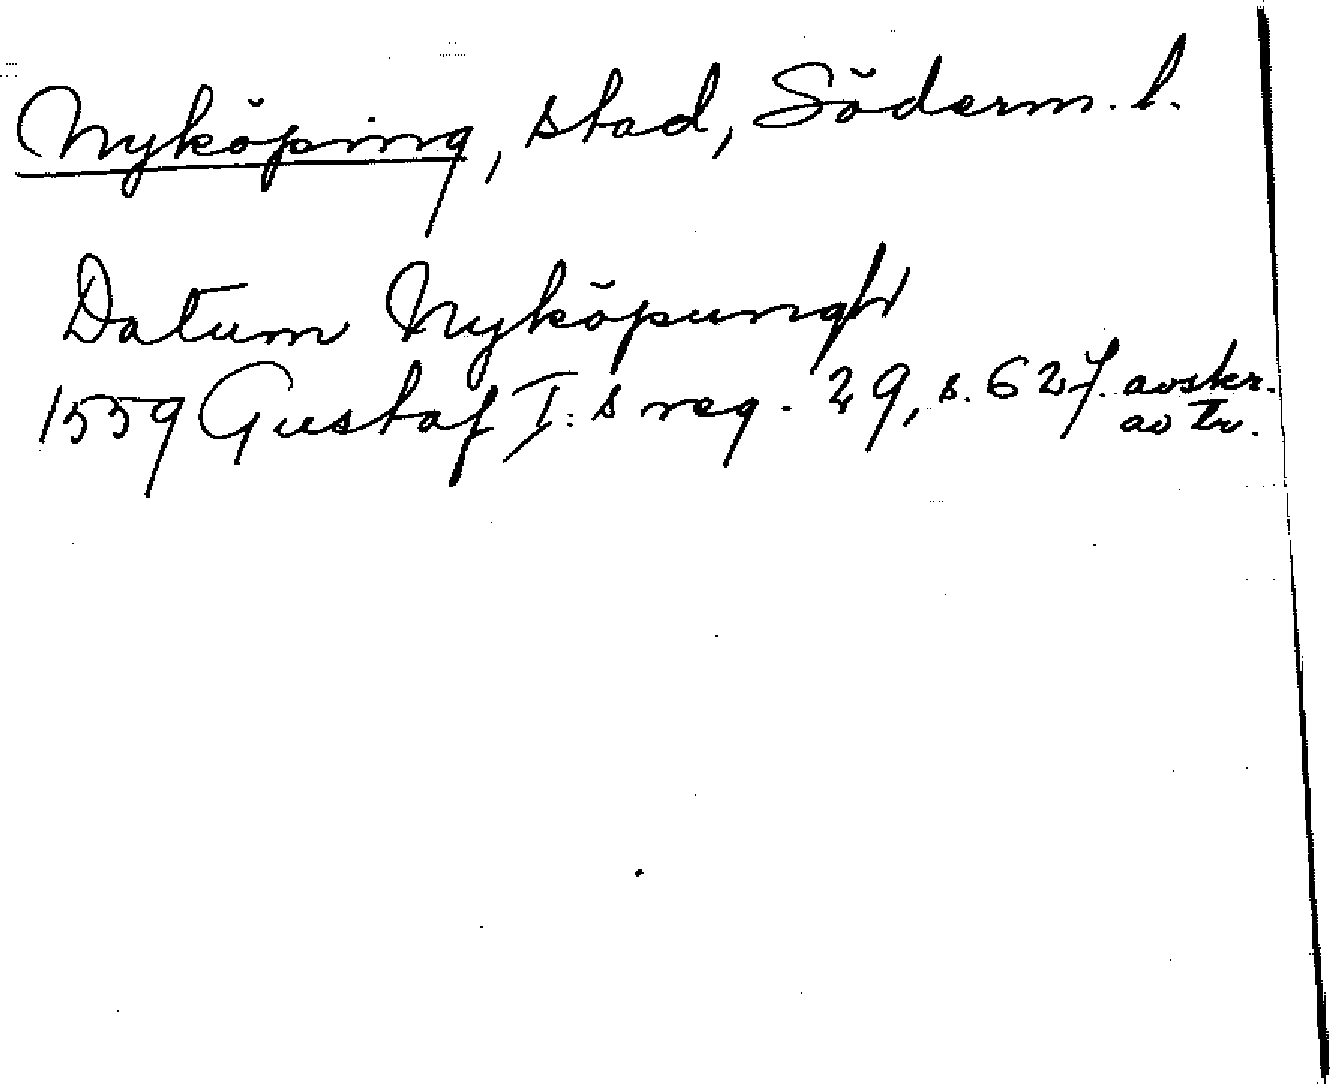 Nyköping, stad, Söderm. l.
Datum Nyköpungh
1559 Gustaf I:s reg. 29, s. 627. avskr.
av tr.